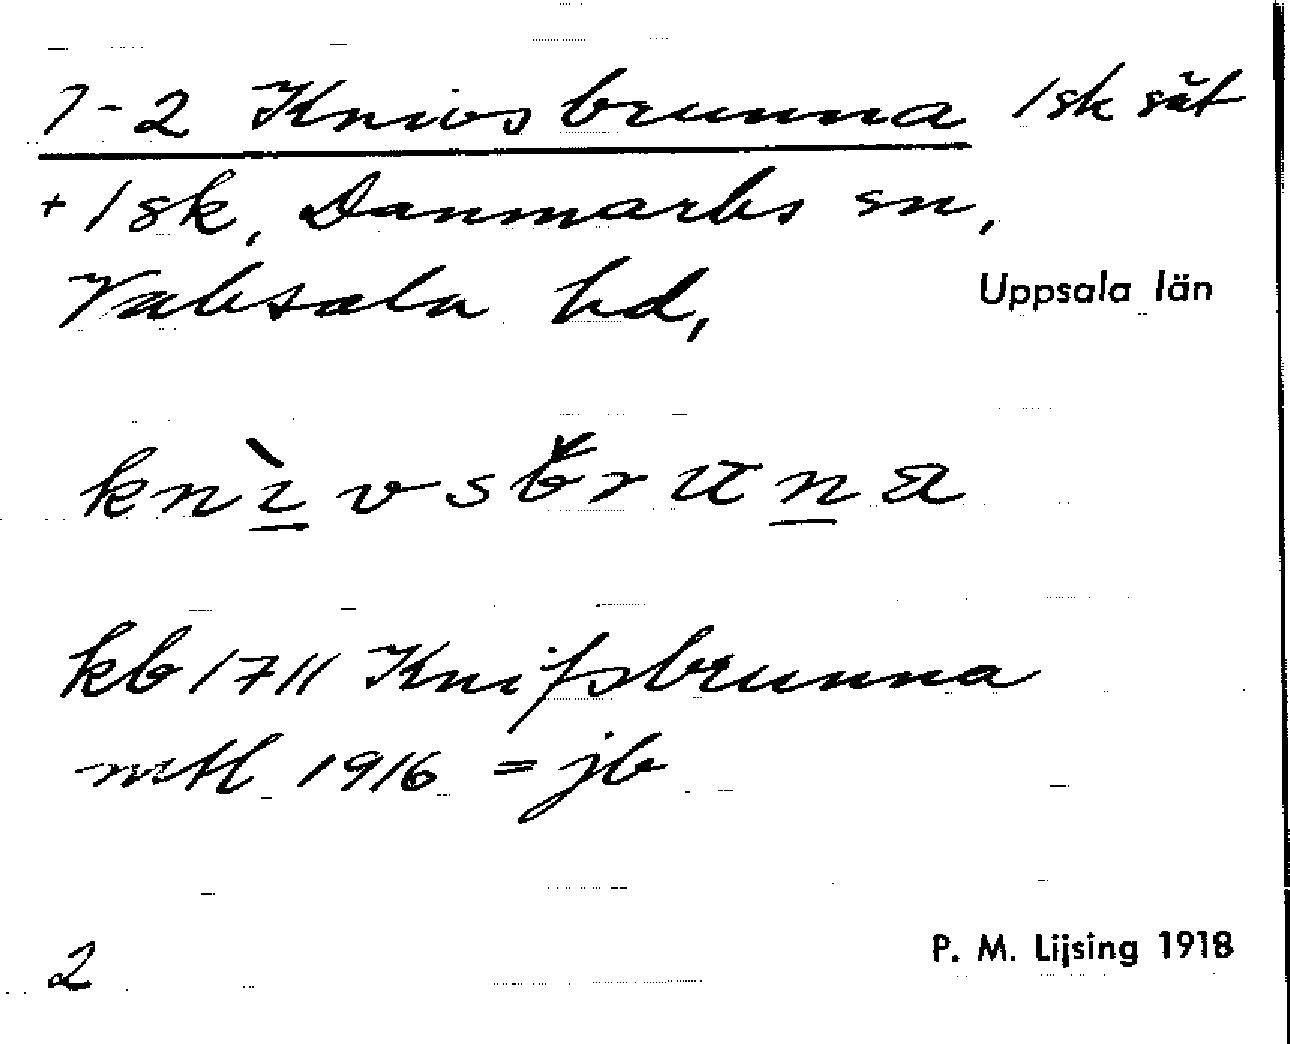 1-2 Knivsbrunna 1 sk sät
+ 1 sk, Danmarks sn,
Vaksala hd,
Uppsala län
knìvsbruna
kb 1711 Knifsbrunna
mtl 1916 = jb
2
P. M. Lijsing 1918